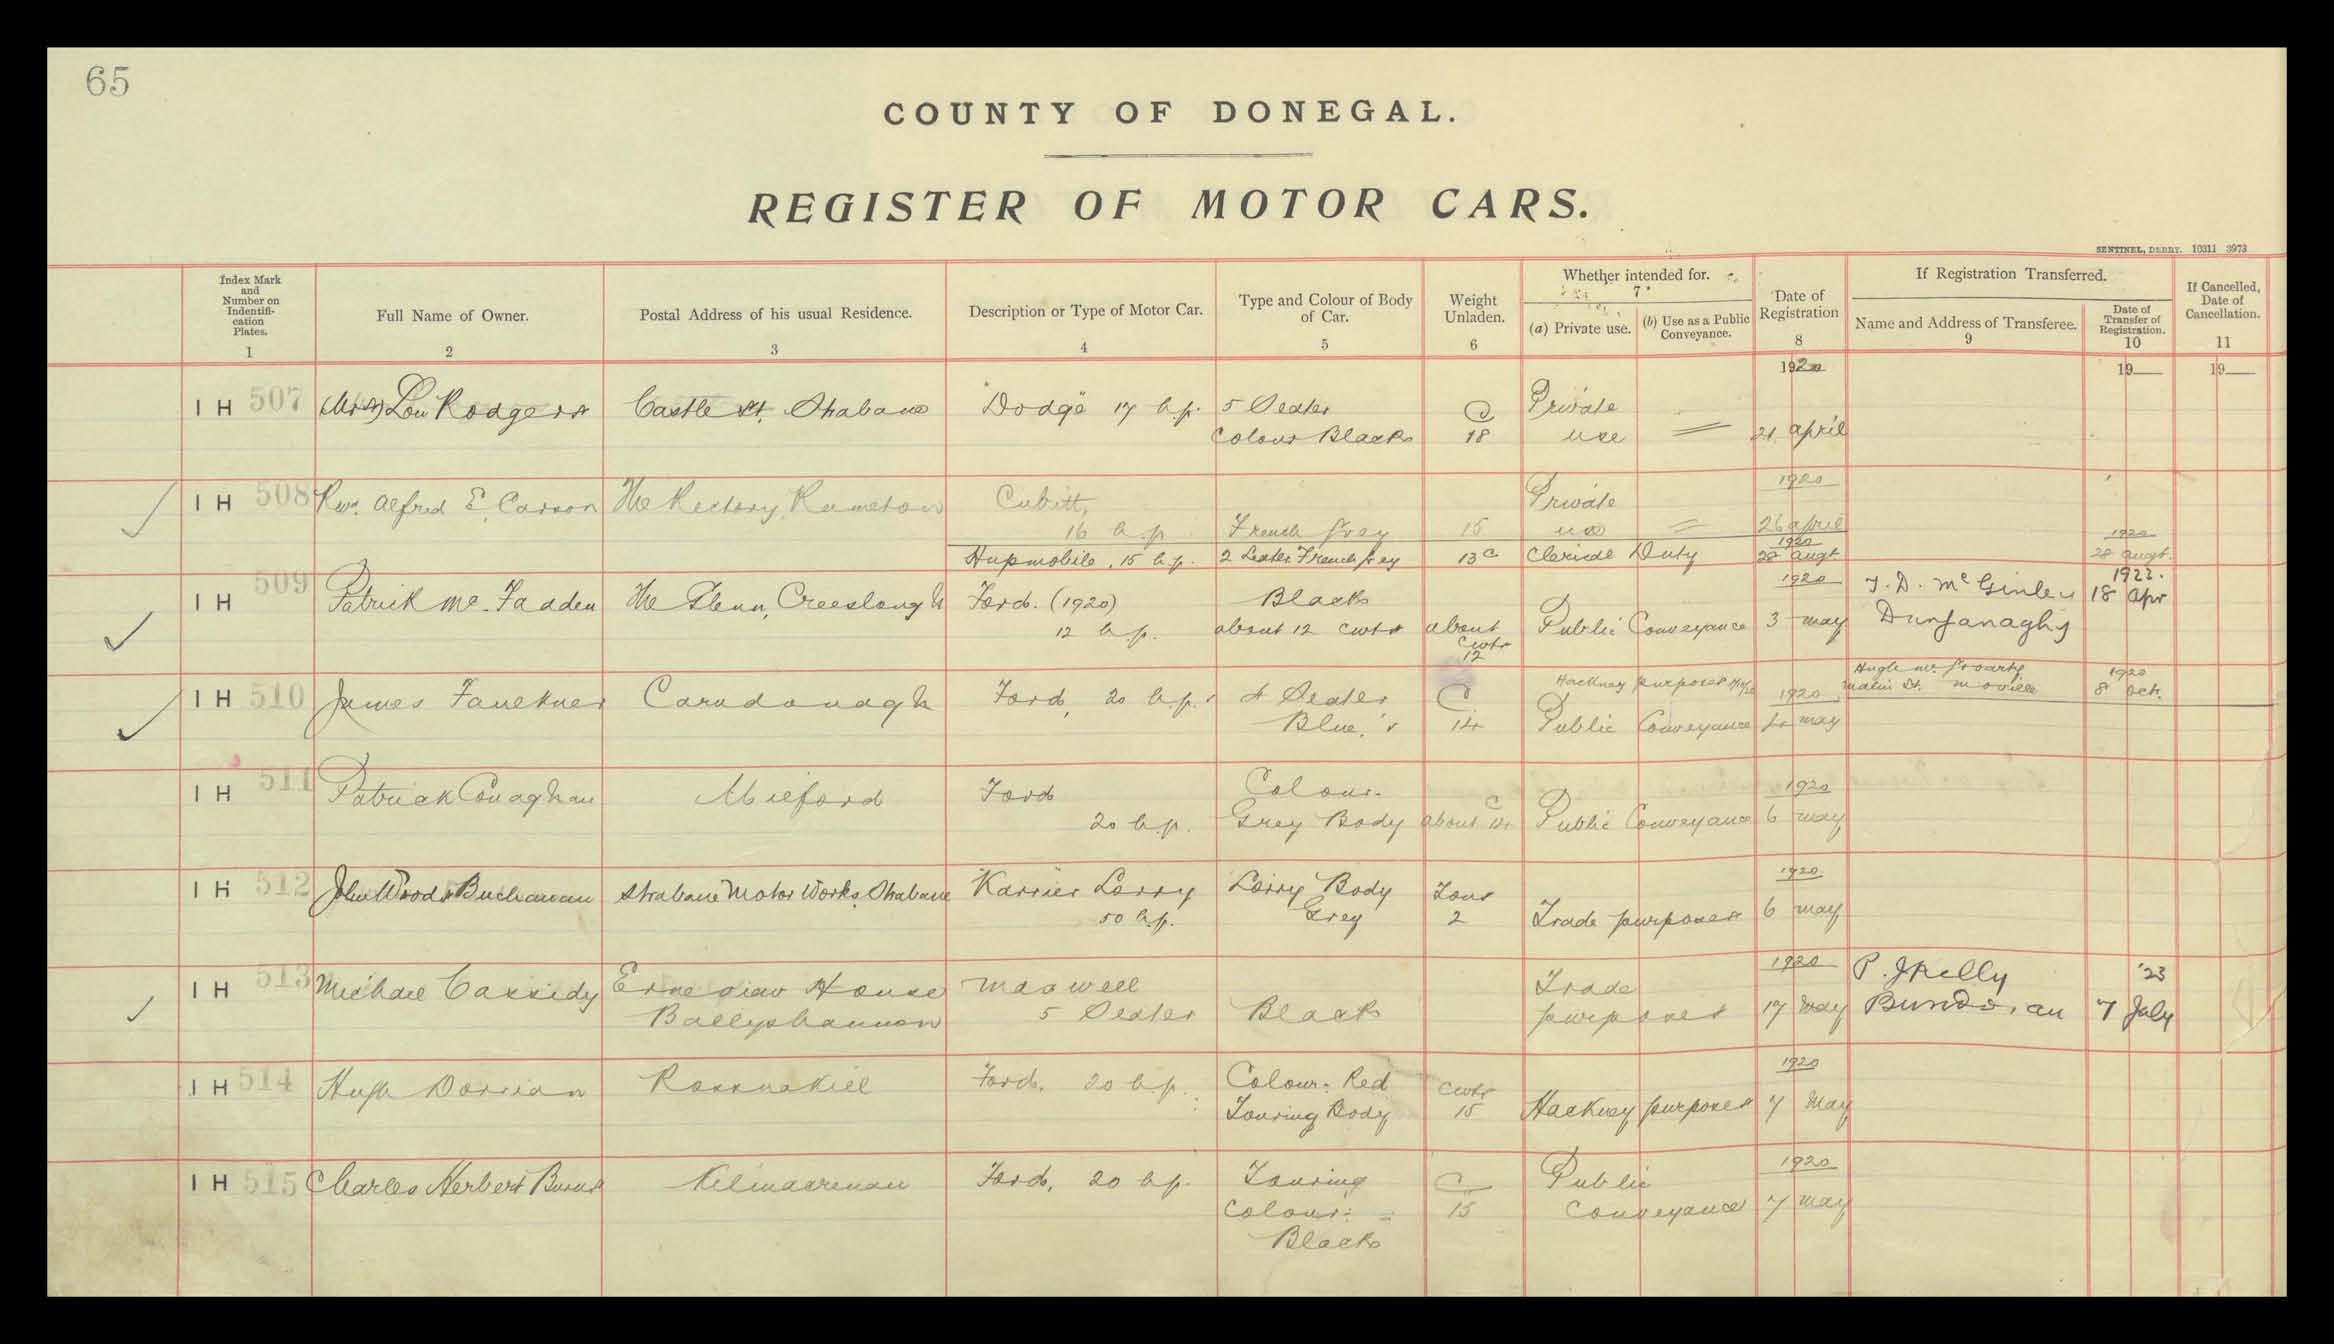 65
COUNTY OF DONEGAL.
REGISTER OF MOTOR CARS.
SENTINEL, DERRY. 10311 3973
Index Mark and Number on Indentifi-cation Plates. 1
Full Name of Owner. 2
Postal Address of his usual Residence. 3
Description or Type of Motor Car. 4
Type and Colour of Body of Car. 5
Weight Unladen. 6
Whether intended for. 7
(a) Private use.
(b) Use as a Public Conveyance.
Date of Registration 8
If Registration Transferred.
Name and Address of Transferee. 9
Date of Transfer of Registration. 10
If Cancelled, Date of Cancellation. 11
1920 19 19
IH 507 (Mrs) Lou Rodgers Castle St. Strabane Dodge 17 h.p. 5 Seater C Private
Colour Black 18 use 21 April
IH 508 Rev. Alfred E. Carson The Rectory, Rameton Cubitt, Private 1920
16 h.p. French Grey 15 use 26 April
Hupmobile, 15 h.p. 2 Seater French Grey 13 c Clerical Duty 1920 28 Augt. 1920 28 Augt.
IH 509 Patrick Mc. Fadden The Glenn, Creeslough Ford. (1920) Black 1920 J. D. McGinley 1922. 18 Apr
12 h.p. about 12 cwts about cwts 12 Public Conveyance 3 May Dunfanaghy
IH 510 James Faulkner Carndonagh Ford, 20 h.p. 4 Seater C Hackney purposes 1920 Hugh Mc. Groarty 1920
Malin St. Moville 8 Oct.
Blue. 14 Public Conveyance 4 May
IH 511 Patrick Conaghan Milford Ford Colour. 1920
20 h.p. Grey Body about 14 c Public Conveyance 6 May
IH 512 John Woods Buchanan Strabane Motor Works, Strabane Karrier Lorry Lorry Body Tons 1920
50 h.p. Grey 2 Trade purposes 6 May
IH 513 Michael Cassidy House Maxwell Trade 1920 P. J Kelly '23
Ballyshannon 5 Seater Black purposes 17 May Bundoran 7 July
IH 514 Hugh Dorrian Rossnakill Ford, 20 h.p. Colour: Red cwts 1920
Touring Body 15 Hackney purposes 7 May
IH 515 Charles Herbert Burns Kilmacrenan Ford, 20 h.p. Touring C Public 1920
Colour: 15 Conveyance 7 May
Black